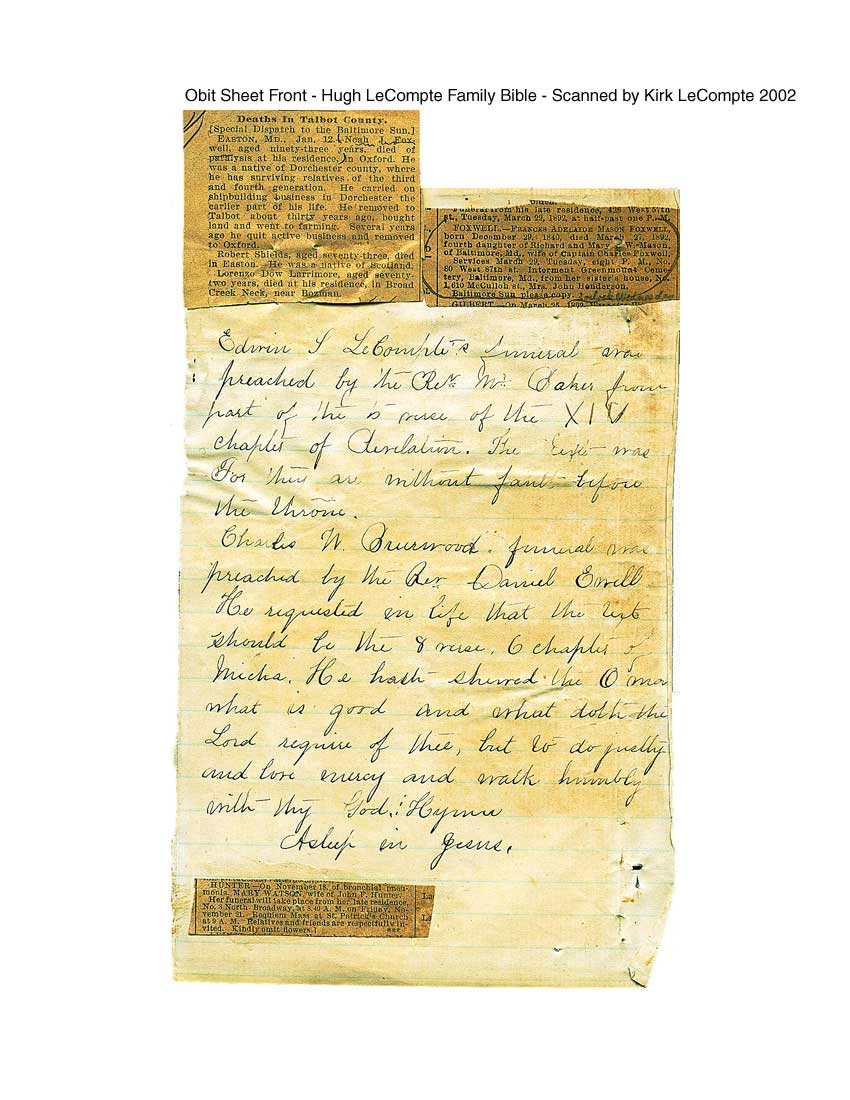 Obit Sheet Front - Hugh LeCompte Family Bible - Scanned by Kirk LeCompte 2002
Deaths In Talbot County.
[Special Dispatch to the Baltimore Sun.]
EASTON, MD., Jan. 12.—Noah J. Fox-
well, aged ninety-three years, died of
paralysis at his residence, in Oxford. He
was a native of Dorchester county, where
he has surviving relatives of the third
and fourth generation. He carried on
shipbuilding business in Dorchester the
earlier part of his life. He removed to
Talbot about thirty years ago, bought
land and went to farming. Several years
ago he quit active business and removed
to Oxford.
Robert Shields, aged seventy-three, died
in Easton. He was a native of Scotland.
Lorenzo Dow Larrimore, aged seventy-
two years, died at his residence, in Broad
Creek Neck, near Bozman.
Funeral from his late residence, 425 West 57th
st., Tuesday, March 29, 1892, at half-past one P. M.
FOXWELL.—FRANCES ADELAIDE MASON FOXWELL,
born December 29, 1840, died March 27, 1892,
fourth daughter of Richard and Mary W. Mason,
of Baltimore, Md., wife of Captain Charles Foxwell.
Services March 29, Tuesday, eight P. M., No.
60 West 87th st. Interment Greenmount Ceme-
tery, Baltimore, Md., from her sister's house, No.
1,610 McCulloh st., Mrs. John Henderson.
Baltimore Sun please copy.
GILBERT.—On March 26, 1892,
Edwin S LeCompte's funeral was
preached by the Rev. Mr. Baker from
part of the 5 verse of the XIV
chapter of Revelation. The text was
For they are without fault before
the throne.
Charles W. Brierwood. funeral was
preached by the Rev. Daniel Ewell
He requested in life that the text
should be the 8 verse. 6 chapter of
Micha. He hath shewed the O man
what is good and what doth the
Lord require of thee, but to do justly
and love mercy and walk humbly
with thy God. Hymn
Asleep in Jesus.
HUNTER—On November 18, of bronchial pneu-
monia, MARY WATSON, wife of John F. Hunter.
Her funeral will take place from her late residence,
No. 8 North Broadway, at 8.40 A. M. on Friday, No-
vember 21. Requiem Mass at St. Patrick's Church
at 9 A. M. Relatives and friends are respectfully in-
vited. Kindly omit flowers.]